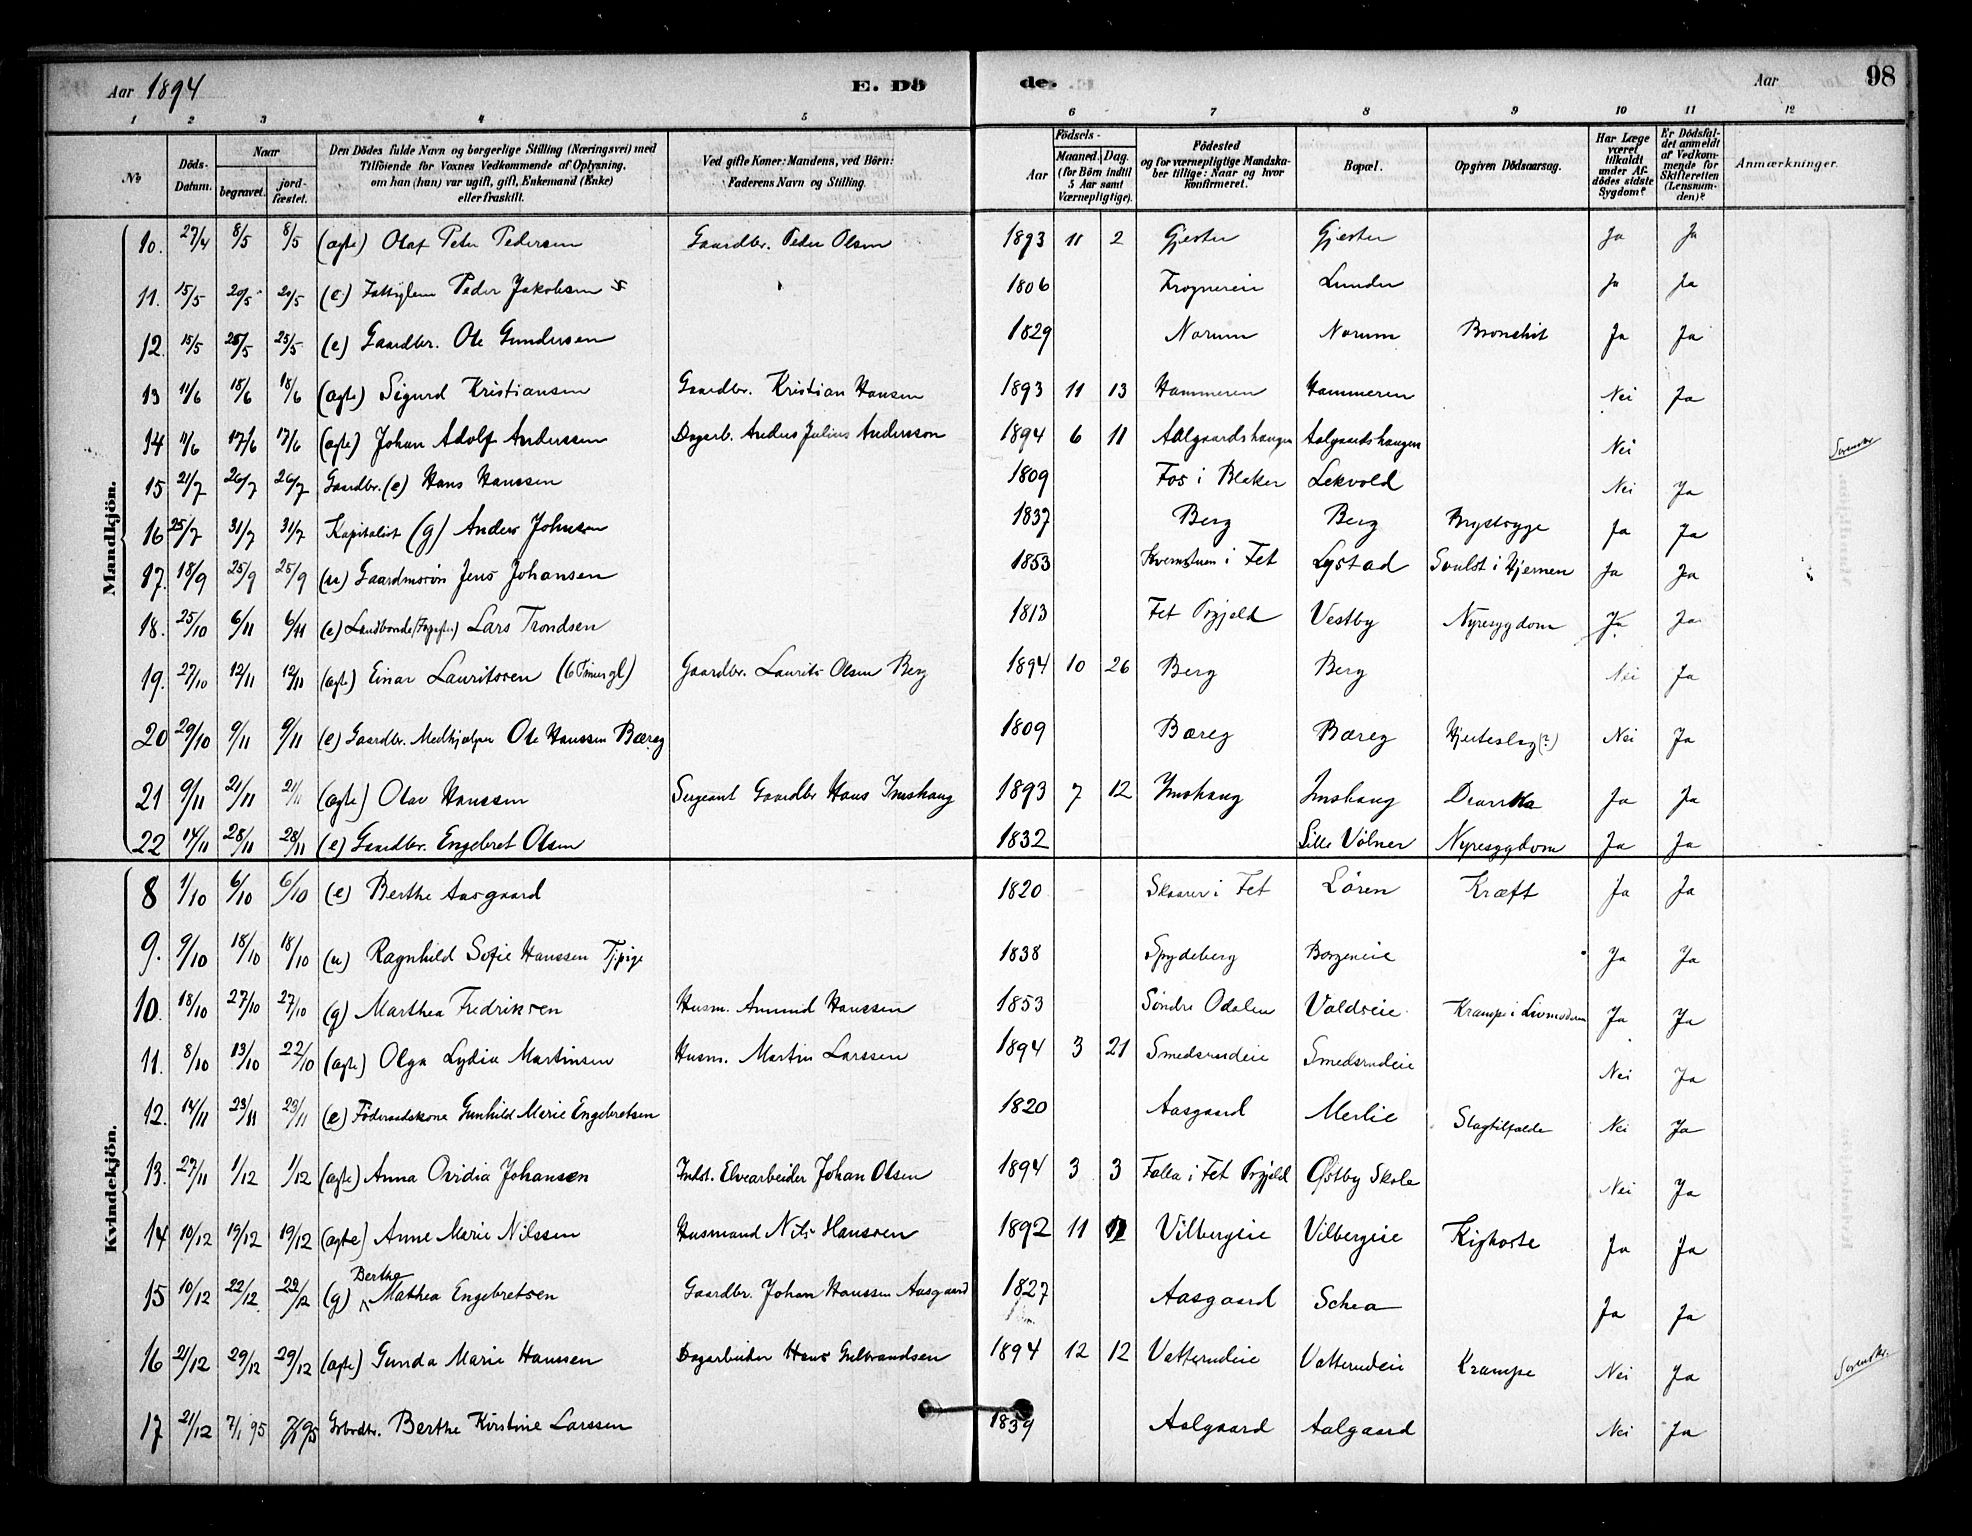 Aar 1894 E. Dö de. Aar 98
1 2 3 4 5 6 7 8 9 10 11 12
No
Döds-Datum.
Naar
begravet.
jord-fæstet.
Den Dödes fulde Navn og borgerlige Stilling (Næringsvei) med
Tilföiende for Voxnes Vedkommende af Oplysning,
om han (hun) var ugift, gift, Enkemand (Enke)
eller fraskilt.
Ved gifte Koner: Mandens, ved Börn:
Faderens Navn og Stilling.
Födsels-
Aar
Maaned. Dag.
(for Börn indtil
5 Aar samt
Værnepligtige).
Födested
og for værnepligtige Mandska-
ber tillige: Naar og hvor
konfirmeret.
Bopæl.
Opgiven Dödsaarsag.
Har Læge
været
tilkaldt
under Af-
dödes sidste
Sygdom?
Er Dödsfal-
det anmeldt
af Vedkom-
mende for
Skifteretten
(Lensman-
den)?
Anmærkninger.
Mandkjön.
10. 27/4 8/5 8/5 (ægte) Olaf Peter Pedersen Gaardbr. Peder Olsen 1893 11 2 Gjester Gjester Ja Ja
11. 15/5 20/5 20/5 (e) Fattiglem Peder Jakobsen 1806 Frognereie Lunder Ja Ja
12. 15/5 25/5 25/5 (e) Gaardbr. Ole Gundersen 1829 Norum Norum Bronchit Ja Ja
13 11/6 18/6 18/6 (ægte) Sigurd Kristiansen Gaardbr. Kristian Hansen 1893 11 13 Hammeren Hammeren Nei Ja
14 11/6 17/6 17/6 (ægte) Johan Adolf Anderssen Dagarb. Anders Julius Andersson 1894 6 11 Aalgaardshaugen Aalgaardshaugen Nei Svenske
15 21/7 26/7 26/7 Gaardbr. (e) Hans Hanssen 1809 Fos i Blaker Lekvold Nei Ja
16 25/7 31/7 31/7 Kapitalist (g) Anders Johnsen 1837 Berg Berg Brystsyge Ja Ja
17. 18/9 25/9 25/9 (u) Gaardmssøn Jens Johansen 1853 Kvernstuen i Fet Lystad Svulst i Hjernen Ja Ja
18. 25/10 6/11 6/11 (e) Landbonde Lars Trondsen 1813 Fet Prgjeld Vestby Nyresygdom Ja Ja
19. 27/10 12/11 12/11 (ægte) Einar Lauritsen (6 Timer gl) Gaardbr. Laurits Olsen Berg 1894 10 26 Berg Berg Nei Ja
20 29/10 9/11 9/11 (e) Gaardbr. Medhjælper Ole Hanssen Bæreg 1809 Bæreg Bæreg Hjerteslag (?) Nei Ja
21 9/11 21/11 21/11 (ægte) Olav Hanssen Sergeant Gaardbr Hans Imshaug 1893 7 12 Imshaug Imshaug Diarrhe Ja Ja
22 14/11 28/11 28/11 (e) Gaardbr. Engebret Olsen 1832 Lille Völner Nyresygdom Ja Ja
Kvindekjön.
8 1/10 6/10 6/10 (e) Berthe Aasgaard 1820 Skaarer i Fet Løren Kræft Ja Ja
9. 9/10 18/10 18/10 (u) Ragnhild Sofie Hanssen Tjpige 1838 Spydeberg Borgeneie Ja Ja
10. 18/10 27/10 27/10 (g) Marthea Fredriksen Husm. Amund Hanssen 1853 Søndre Odalen Valdseie Krampe i Livmoderen Ja Ja
11. 8/10 13/10 22/10 (ægte) Olga Lydia Martinsen Husm. Martin Larssen 1894 3 21 Smedsrudeie Smedsrudeie Nei Ja
12. 14/11 23/11 23/11 (e) Föderaadskone Gunhild Marie Engebretsen 1820 Aasgaard Merlie Slagtilfælde Nei Ja
13. 27/11 1/12 1/12 (ægte) Anna Ovidia Johansen Indst. Elvearbeider Johan Olsen 1894 3 3 Falla i Fet Prgjeld Østby Skole Nei Ja
14 10/12 19/12 19/12 (ægte) Anne Marie Nilssen Husmand Nils Hanssen 1892 11 12 Vilbergeie Vilbergeie Kighoste Ja Ja
15 10/12 22/12 22/12 (g) Berthe Mathea Engebretsen Gaardbr. Johan Hanssen Aasgaard 1827 Aasgaard Schea Ja Ja
16 21/12 29/12 29/12 (ægte) Gunda Marie Hanssen Dagarbeider Hans Gulbrandsen 1894 12 12 Vatterudeie Vatterudeie Krampe Nei Ja Svenske.
17 21/12 7/1 95 7/1 95 Berthe Kirstine Larssen 1839 Aalgaard Aalgaard Nei Ja